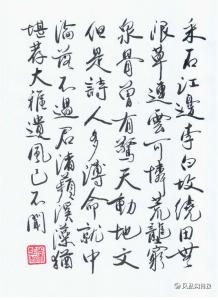 采石江邊李白坟繞田無
限草連雲可憐荒壠窮
泉骨曾有驚天動地文
但是詩人多薄命就中
淪落不過君渚蘋溪藻猶
堪荐大雅遺風已不聞